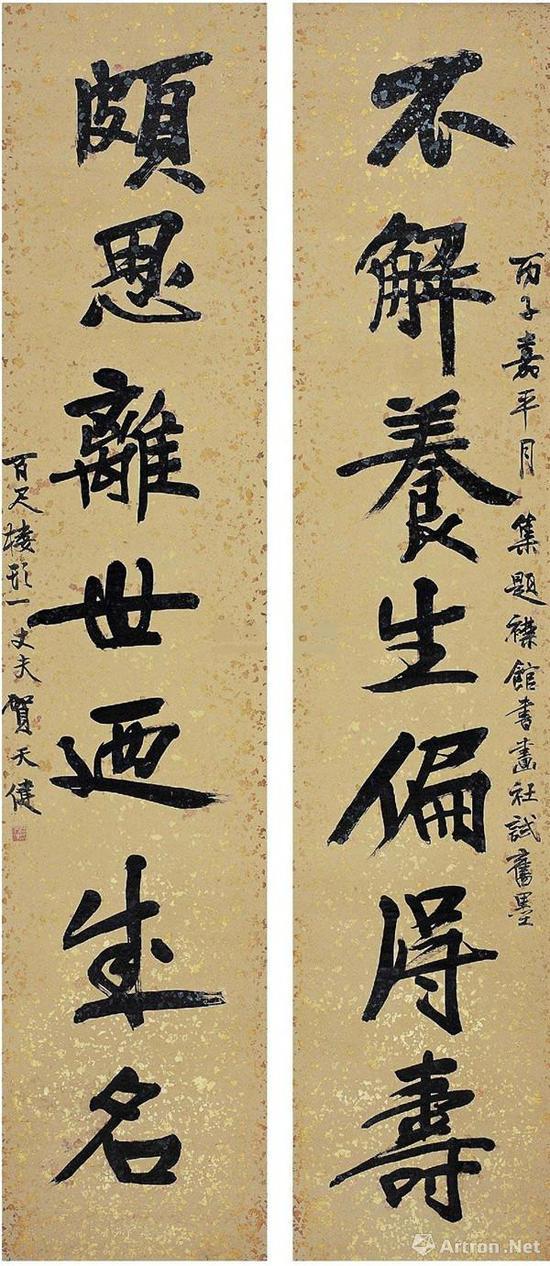 丙子嘉平月 集題襟館書畫社試舊墨
不解養生偏得壽
頗思離世迺成名
百尺樓頭一丈夫賀天健
Artron.Net